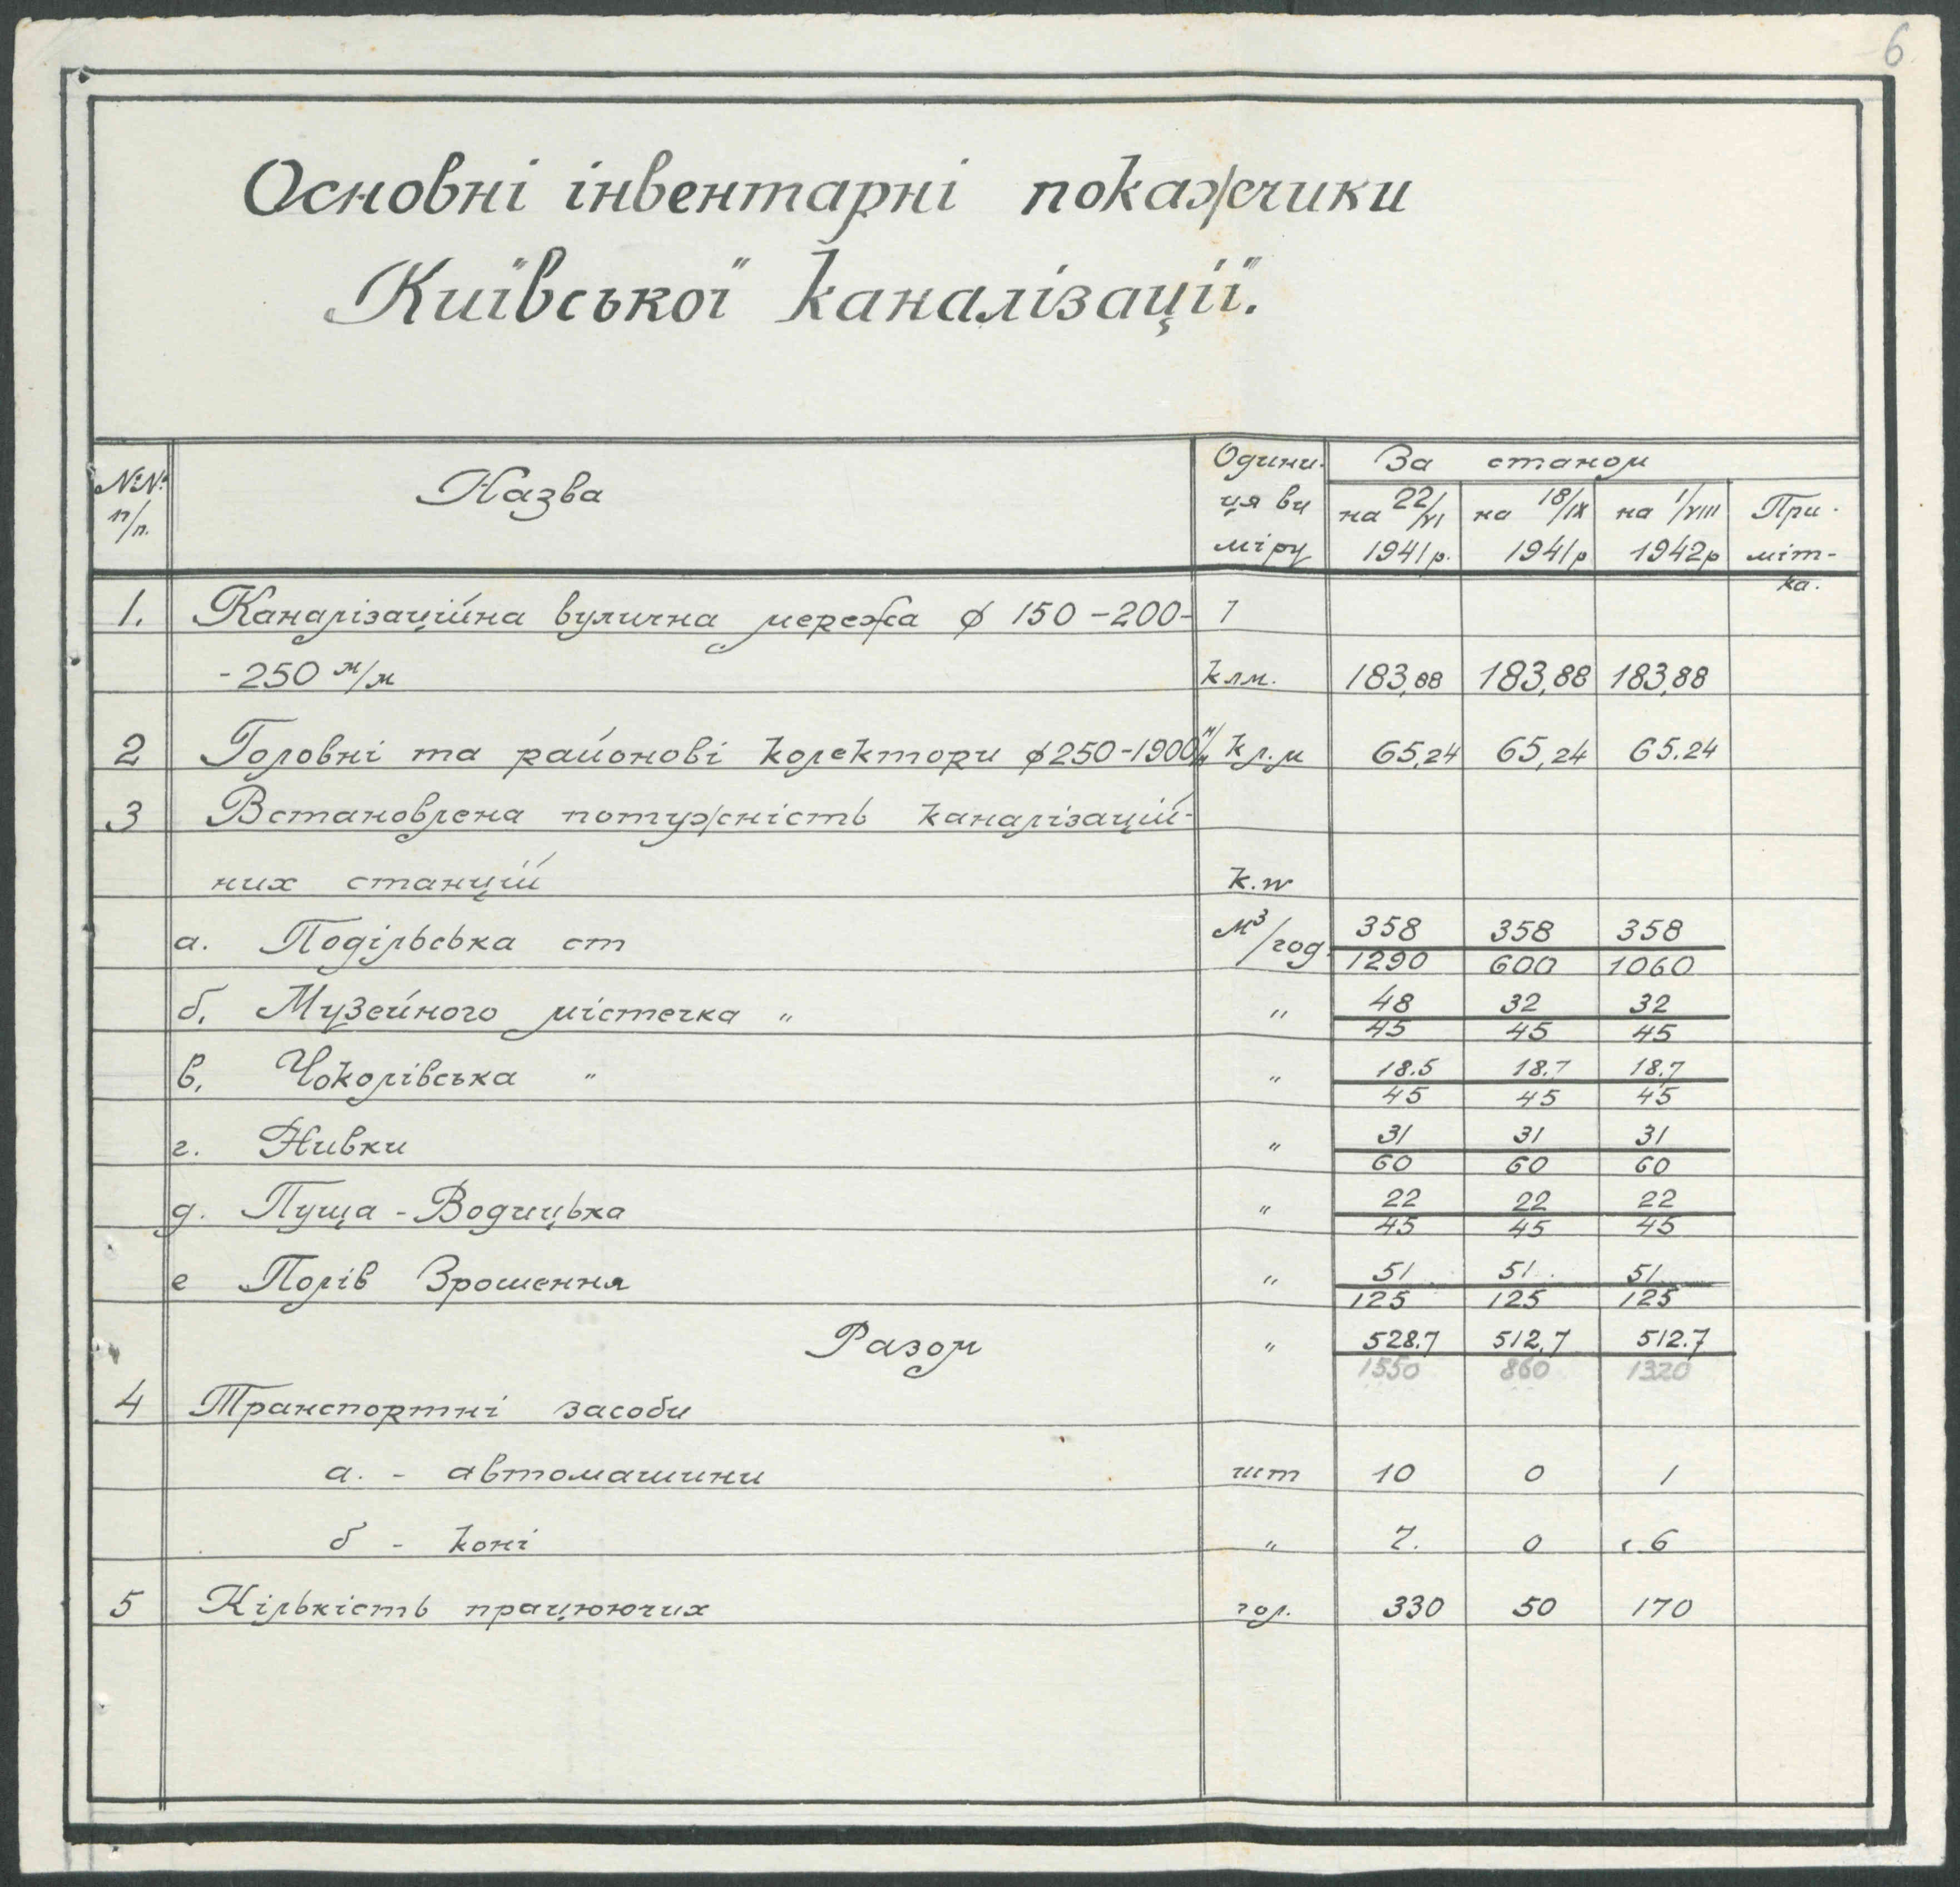 6
Основні інвентарні покажчики
Київської каналізації.
№№ п/п. Назва Одини- ця ви міру За станом
на 22/VI 1941р. на 18/IX 1941р на 1/VIII 1942р При- міт- ка.
1. Каналізаційна вулична мережа ϕ 150-200-
-250 м/м клм. 183,88 183,88 183,88
2 Головні та районові колектори ϕ250-1900 м/м кл.м 65,24 65,24 65.24
3 Встановлена потужність каналізацій-
них станцій к.w
а. Подільська ст м³/год. 358/1290 358/600 358/1060
б. Музейного містечка " " 48/45 32/45 32/45
в. Чоколівська " " 18.5/45 18.7/45 18.7/45
г. Нивки " 31/60 31/60 31/60
д. Пуща-Водицька " 22/45 22/45 22/45
е Полів Зрошення " 51/125 51/125 51/125
Разом " 528.7/1550 512,7/860 512.7/1320
4 Транспортні засоби
а. - автомашини шт 10 0 1
б - коні " 7. 0 6
5 Кількість працюючих гол. 330 50 170